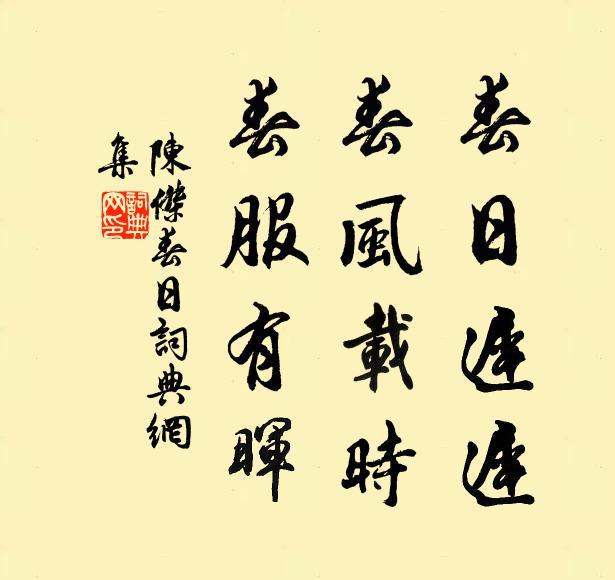 春日遲遲
春風載時
春服有暉
陳傑春日詞典網
集
詞典
网印